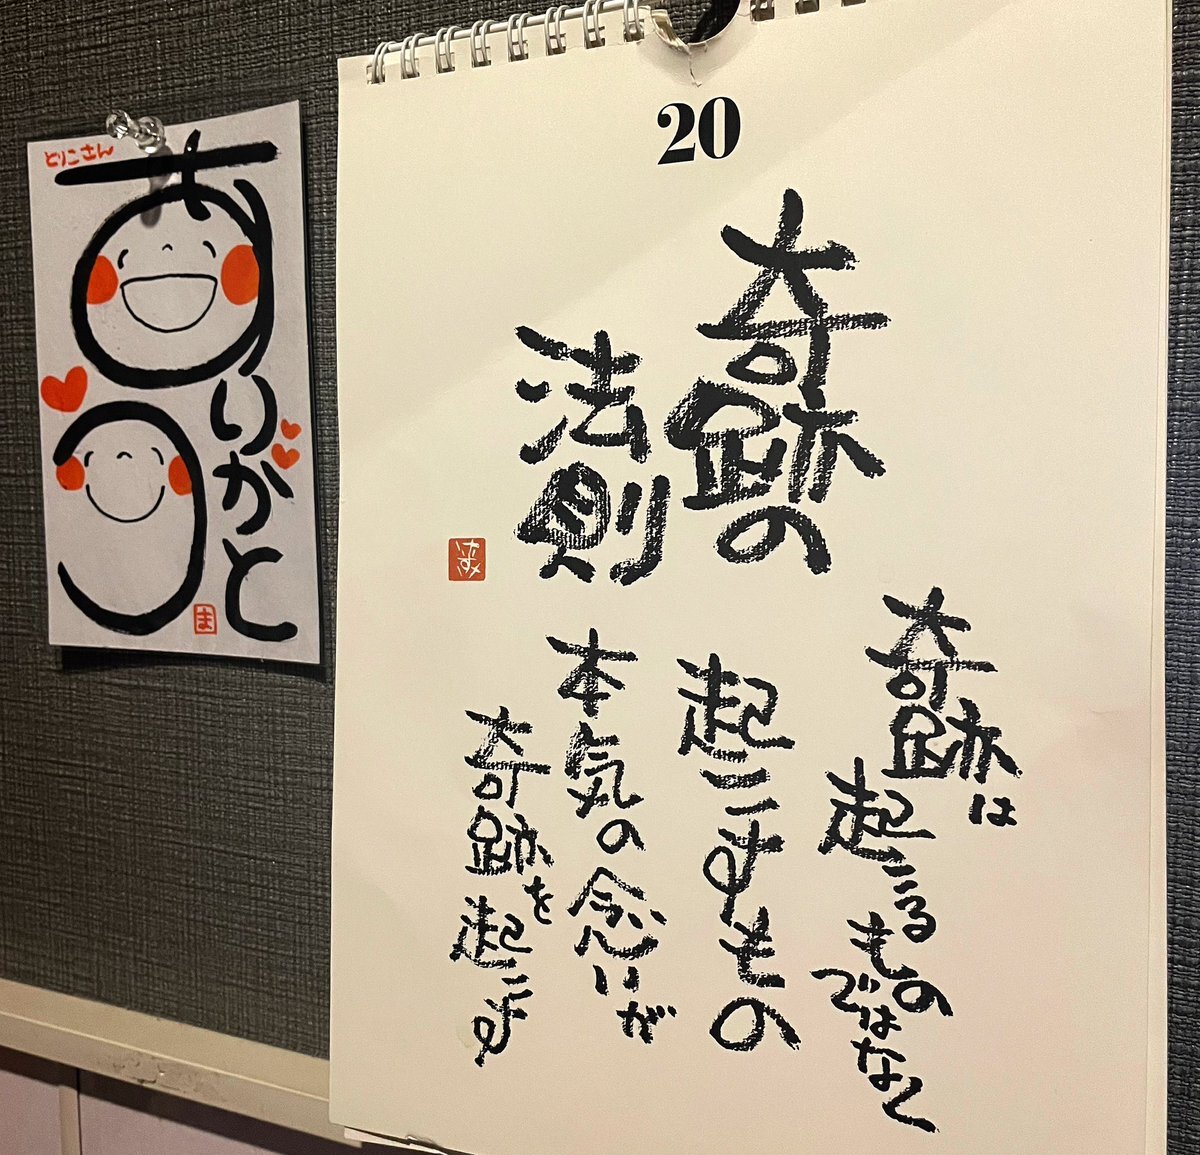 とりこさん
ありがとう
ま
20
奇跡の
法則
奇跡は
起こるもの
ではなく
起こすもの
本気の念いが
奇跡を起こす